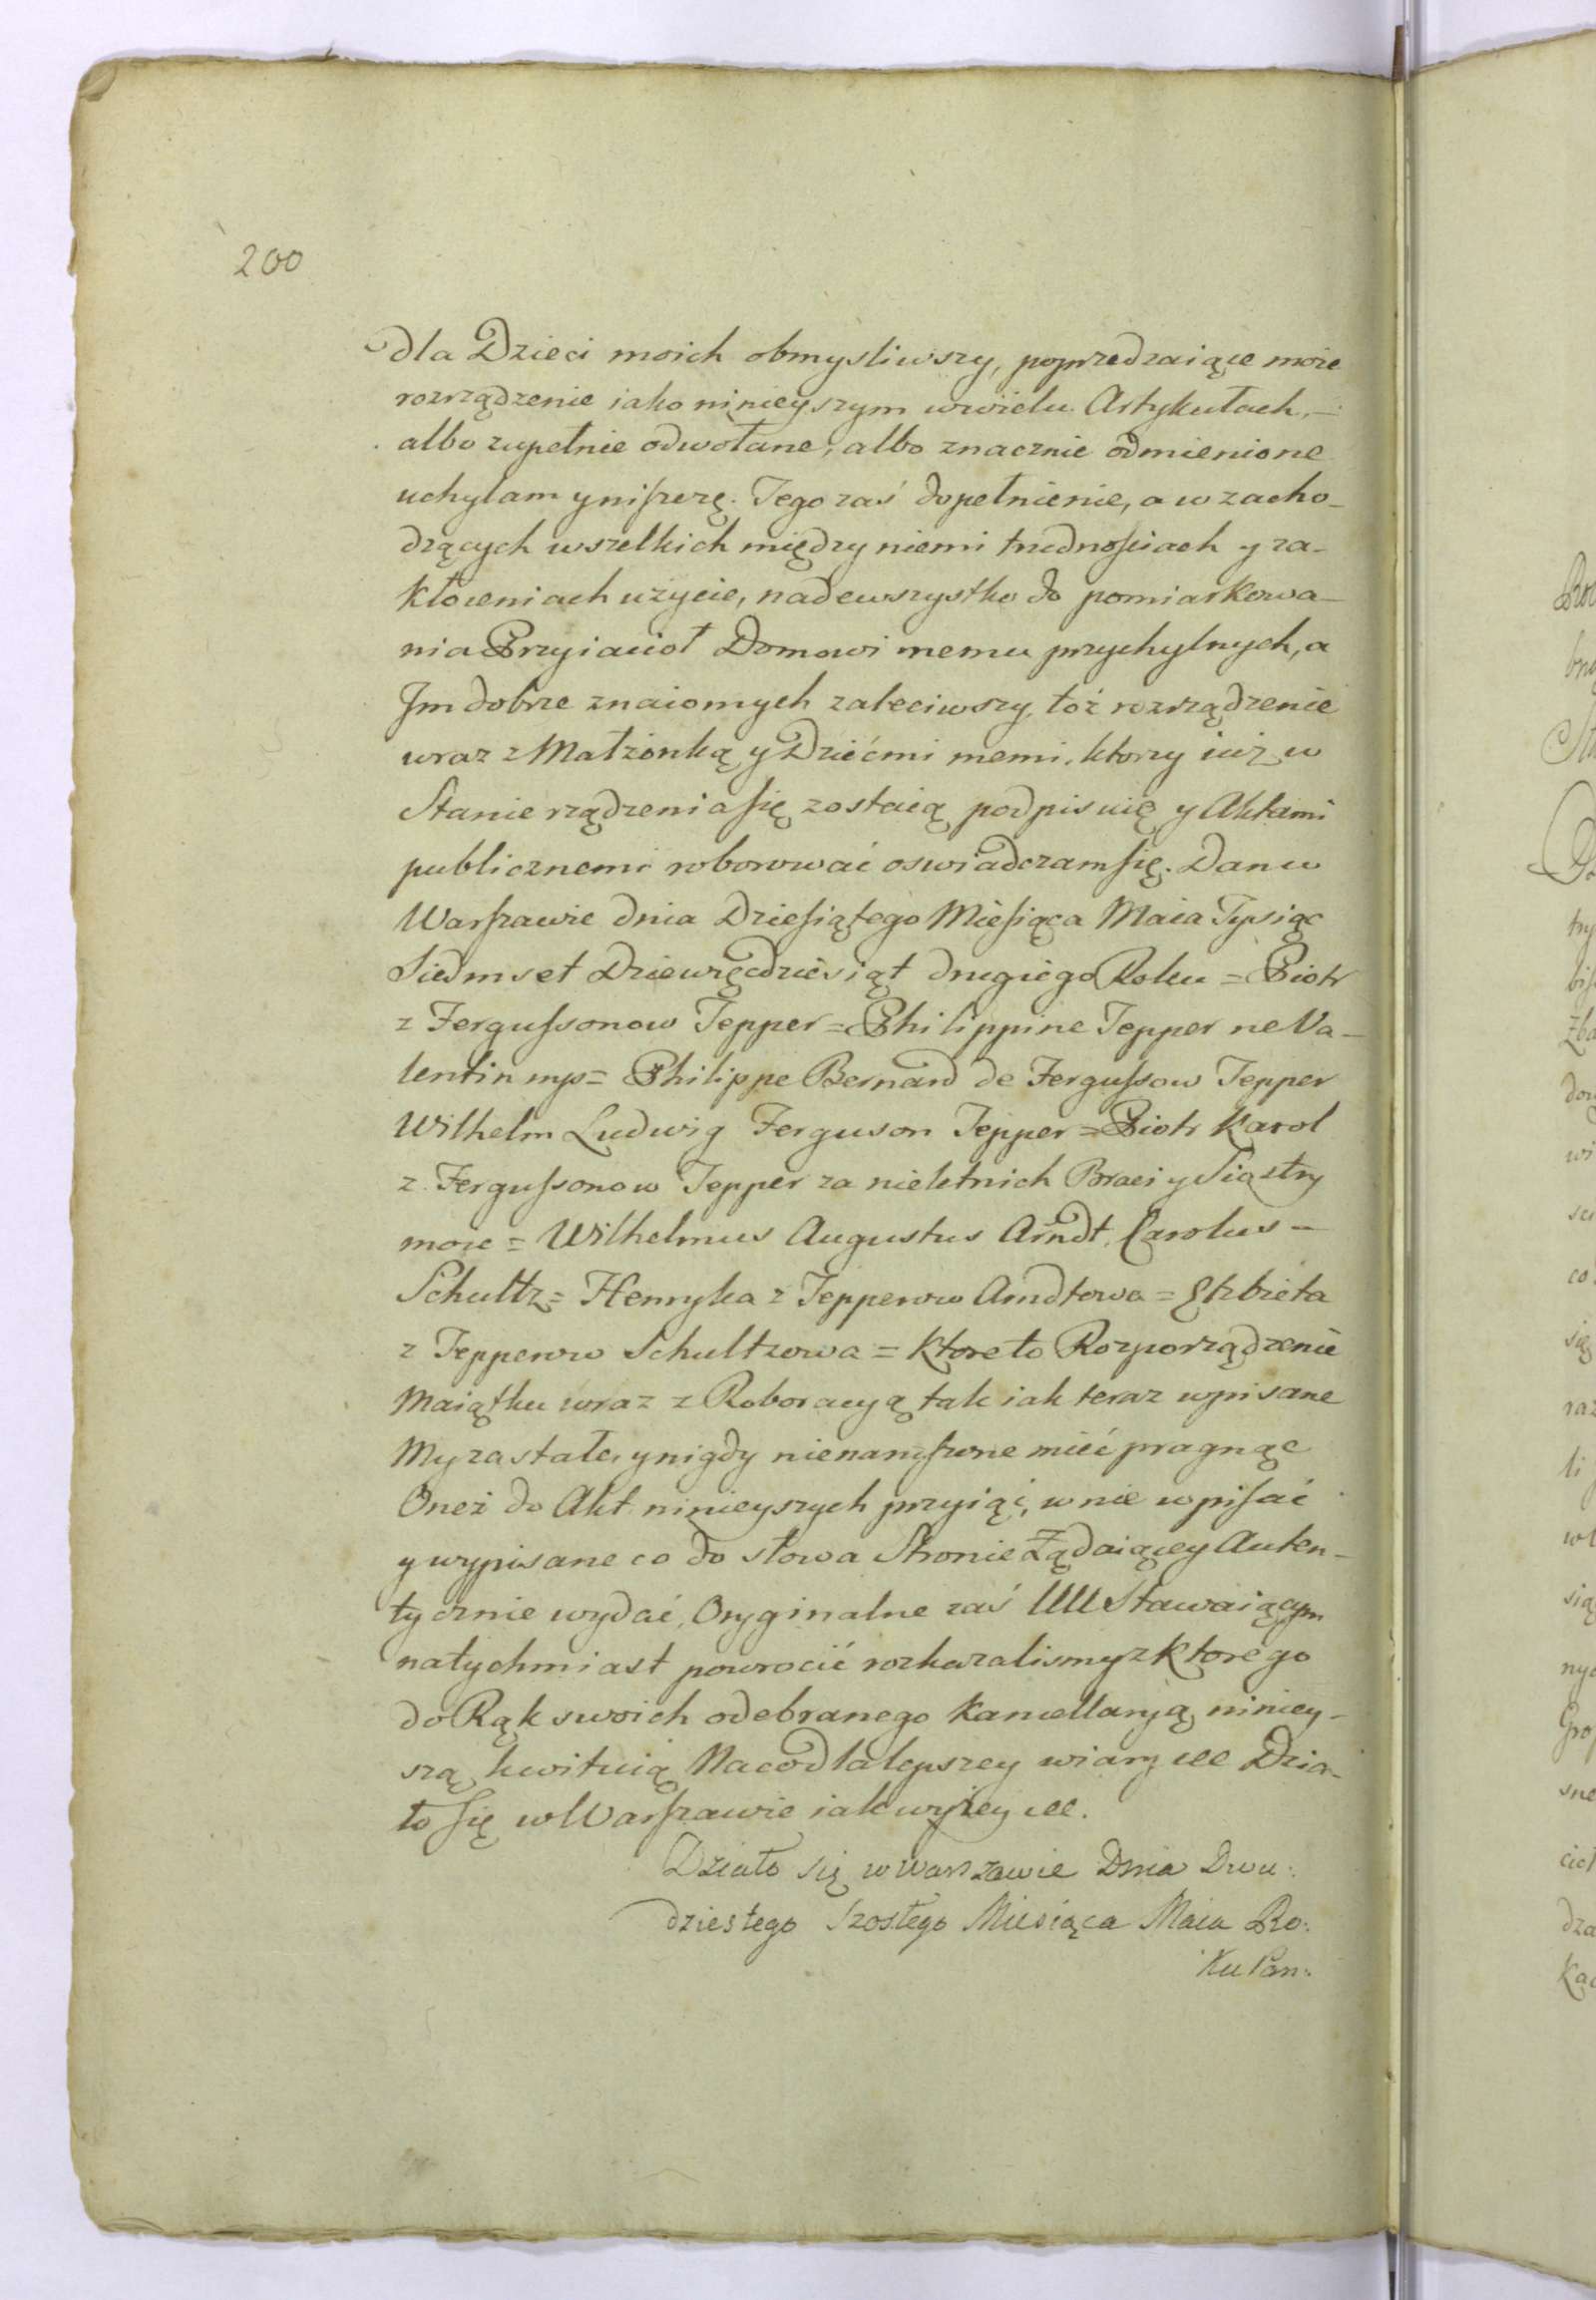 200
dla Dzieci moich obmysliwszy, poprzedzaiące moie
rozrządzenie iako ninieyszym w wielu Artykułach,
albo zupełnie odwołane, albo znacznie odmienione
uchylam y niszczę. Tego zaś dopełnienie, a w zacho-
dzących wszelkich między niemi trudnościach y za-
kłoceniach użycie, nadewszystko do pomiarkowa-
nia Przyiacioł Domowi memu przychylnych, a
Jm dobrze znaiomych zaleciwszy, toż rozrządzenie
wraz z Małżonką y Dziećmi memi, ktorzy iuż w
Stanie rządzenia się zostaią podpisuię y Aktami
publicznemi roborować oswiadczam się. Dan w
Warszawie dnia Dziesiątego Miesiąca Maia Tysiąc
Siedmset Dziewięcdziesiąt drugiego Roku = Piotr
z Fergussonow Tepper = Philippine Tepper ne Va-
lentin mp = Philippe Bernard de Fergussow Tepper
Wilhelm Ludwig Ferguson Tepper = Piotr Karol
z Fergussonow Tepper za nieletnich Braci y Siostry
moie = Wilhelmus Augustus Arndt, Carolus -
Schultz = Henryka z Tepperow Arndtowa = Elżbieta
z Tepperow Schultzowa = Ktore to Rozporządzenie
Maiątku wraz z Roboracyą tak iak teraz wpisane
My za stałe, y nigdy nie mieć pragnąc
Oneż do Akt ninieyszych przyiąć, w nie wpisać
y wypisane co do słowa Stronie Żądaiącey Auten-
tycznie wydać, Oryginalne zaś UUU Stawaiącym
natychmiast powrocić rozkazalismy z Ktorego
do Rąk swoich odebranego Kancellaryą niniey-
szą kwituią Na co dla lepszey wiary ett Dzia-
ło się w Warszawie iak wyżey ett.
Działo się w Warszawie Dnia Dwu:
dziestego Szostego Miesiąca Maia Ro:
Ku Pan: